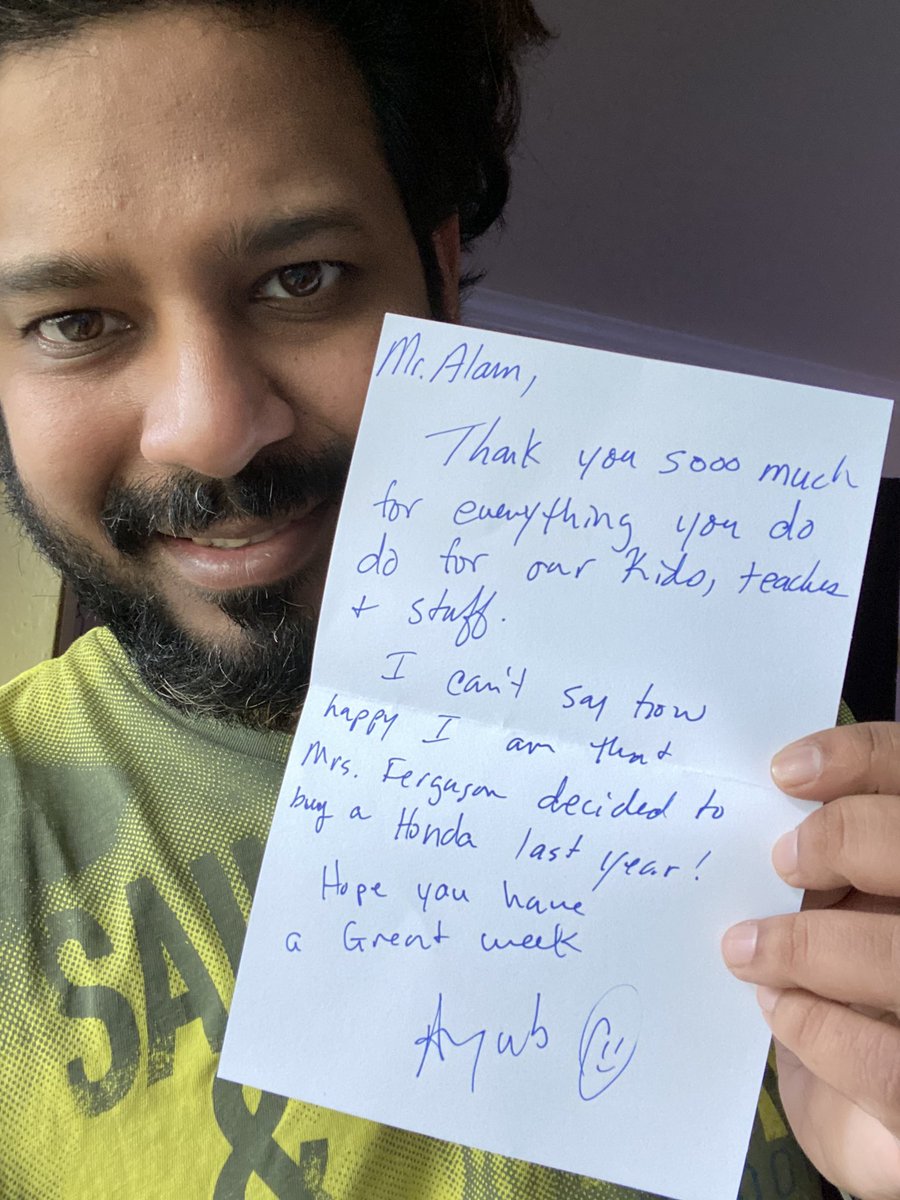 Mr. Alam,
Thank you sooo much
for everything you do
do for our kids, teaches
+ staff.
I can't say how
happy I am that
Mrs. Ferguson decided to
buy a Honda last year!
Hope you have
a Great week
Ayub
SAIL
&